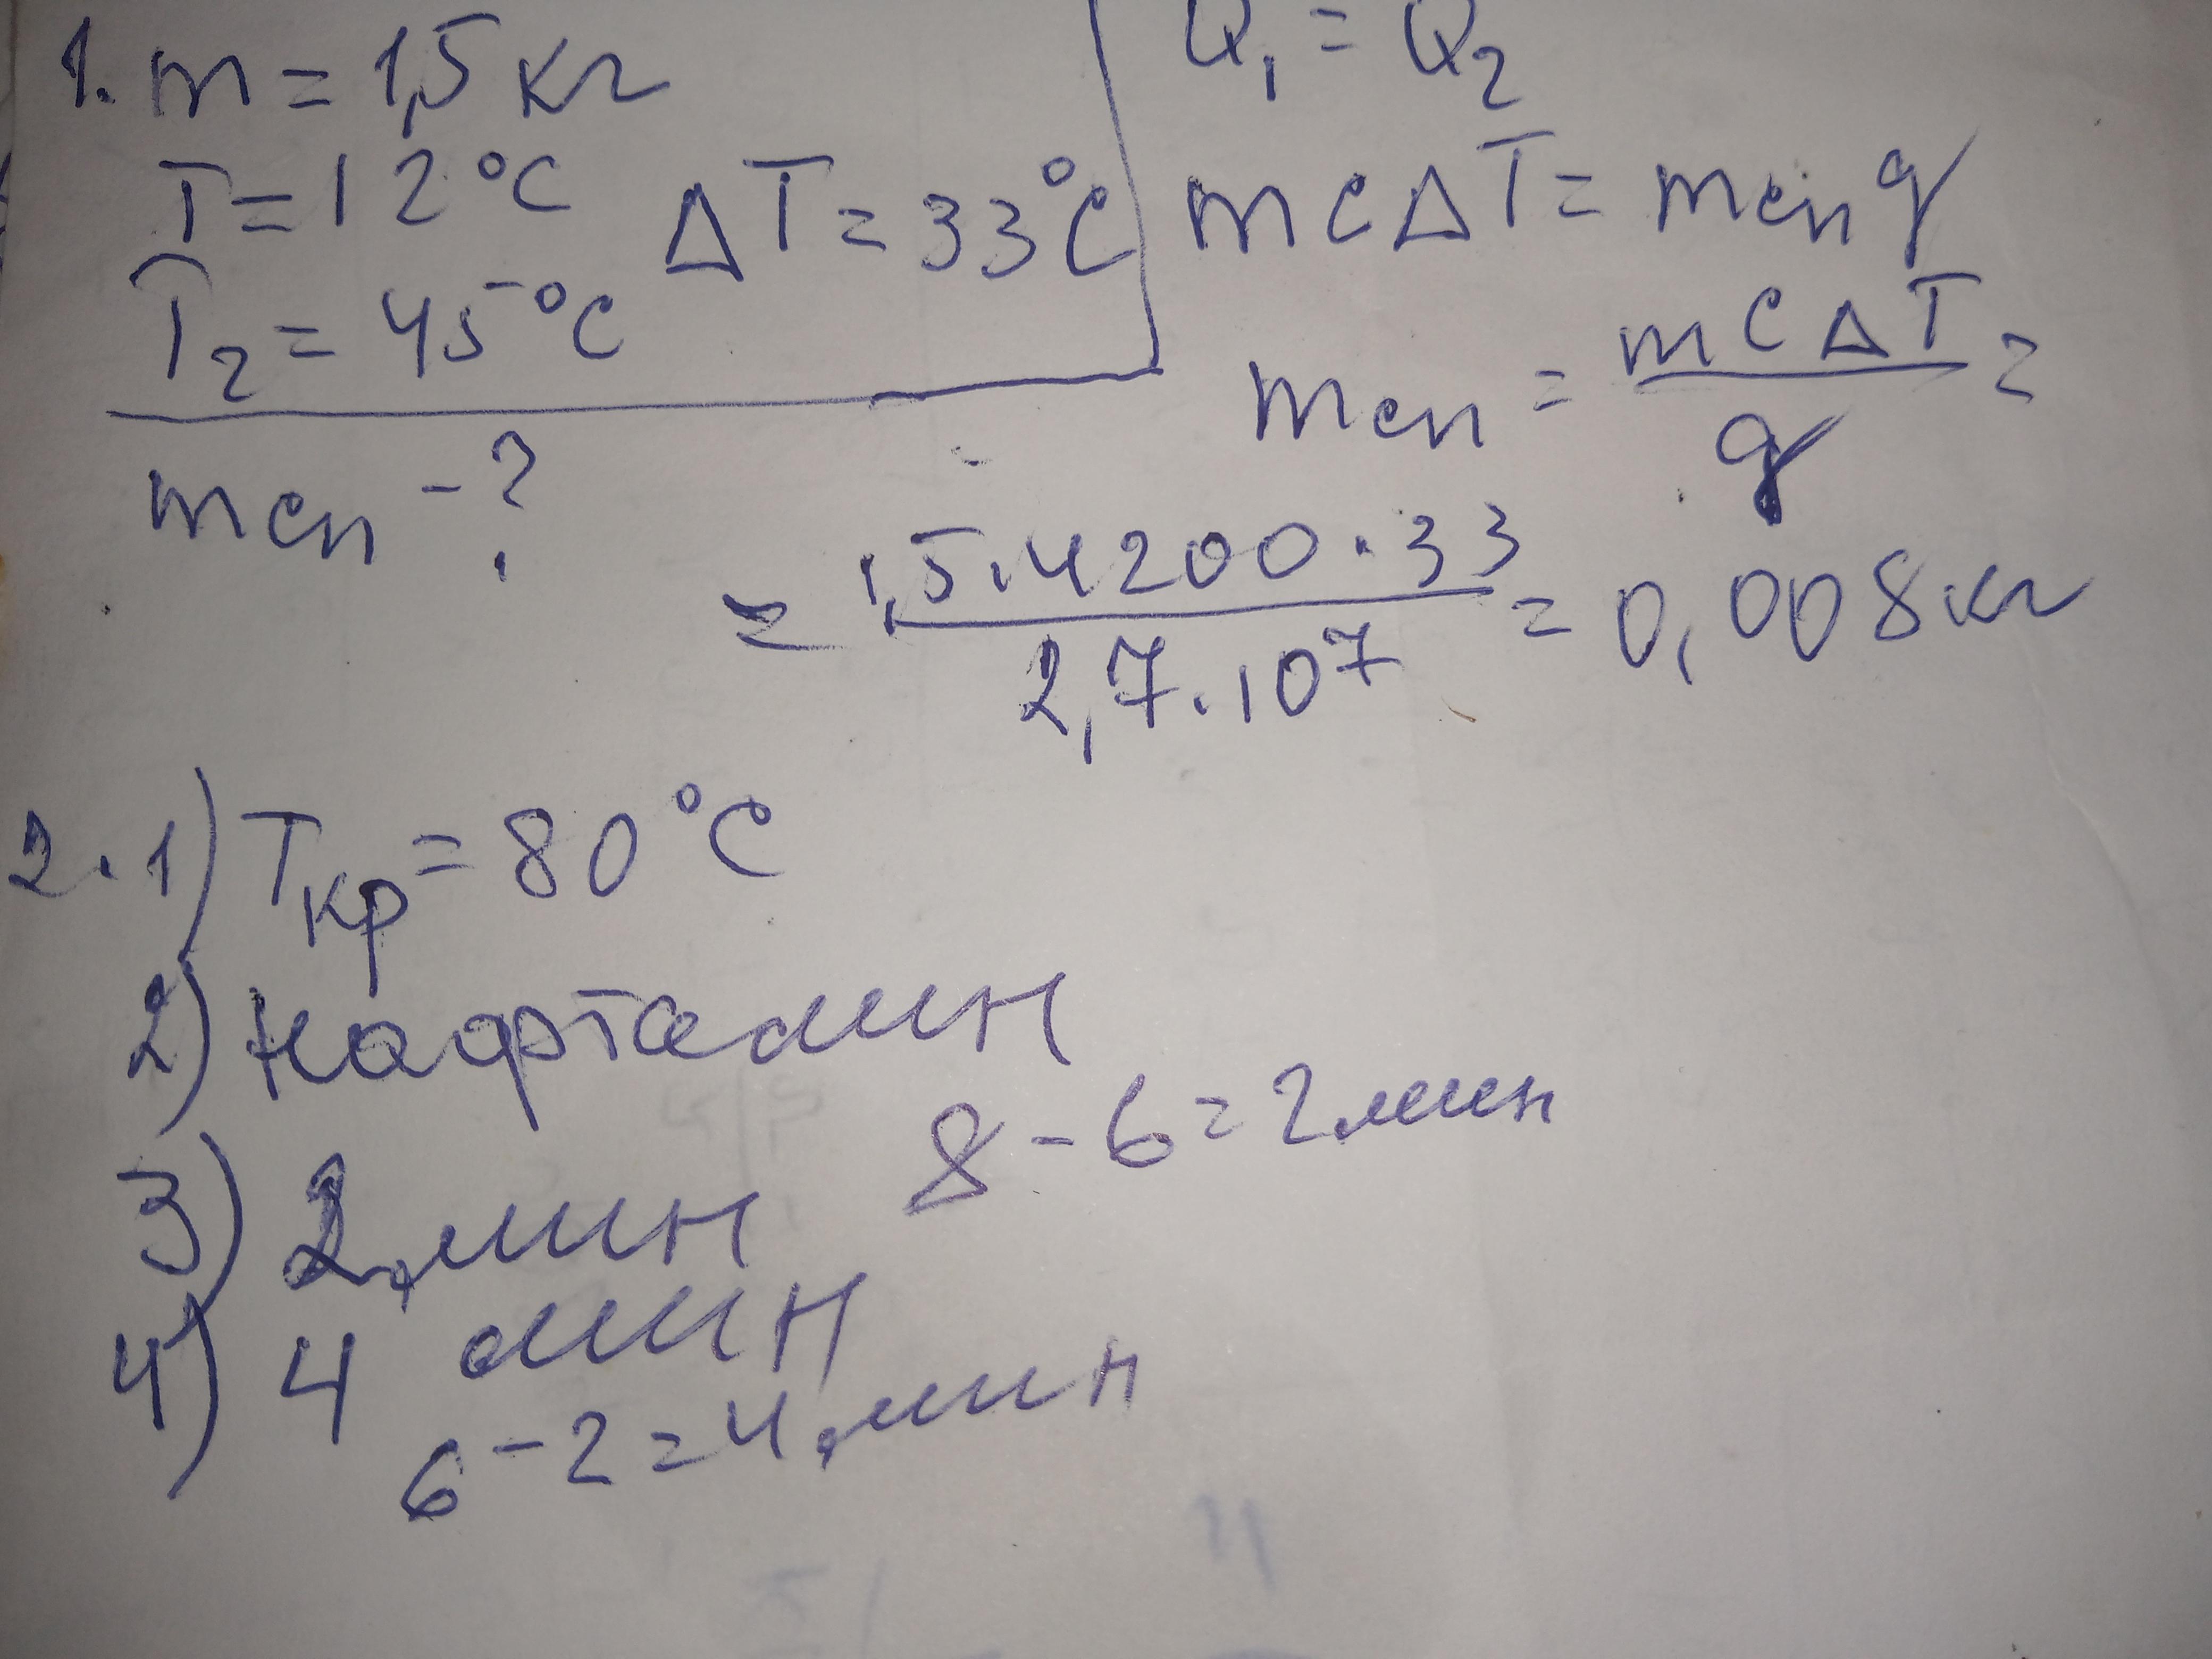 1. m = 1,5 кг
T = 12 °C ΔT = 33 °C
T2 = 45 °C
mсп - ?
Q1 = Q2
mcΔT = mсп q
mсп = mcΔT / q =
= 1,5 · 4200 · 33 / 2,7 · 10^7 = 0,008 кг
2. 1) Tкр = 80 °C
2) нафталин
3) 2 мин 8 - 6 = 2 мин
4) 4 мин
6 - 2 = 4 мин